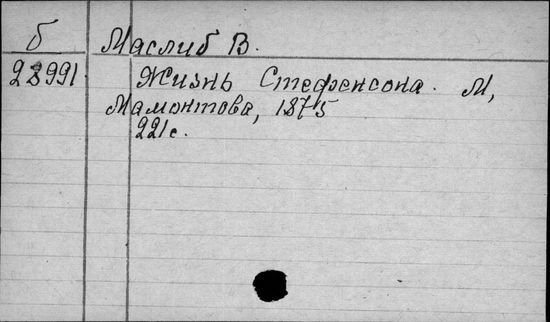 б
Маслиб В.
28991
Жизнь Стефенсона. М,
Мамонтова, 1875
221с.